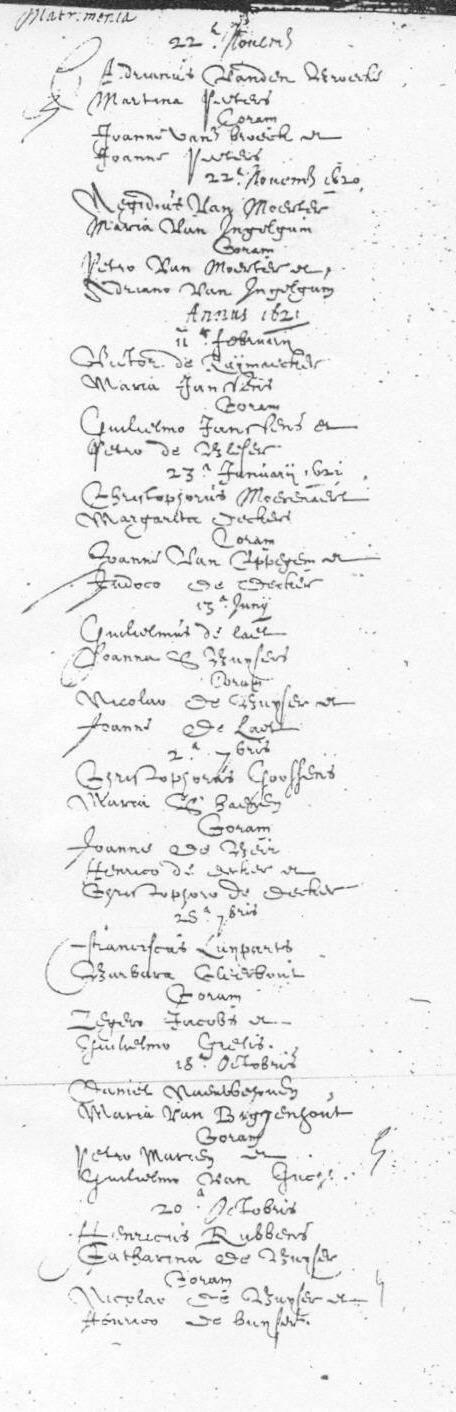 Matrimonia
22ª Novemb
Adrianus Vanden Broecke
Martina Peeters
Coram
Joanne van broeck et
Joanne Peeters
22ª Novemb 1620
Aegidius Van Moerter
Maria Van Ingelgum
Coram
Petro Van Moerter et
Adriano Van Ingelgum
Annus 1621
11ª februarij
Victor de Raijmaecker
Maria Janssens
Coram
Guilielmo Janssens et
Petro de
23ª Januarij 1621
Christophorus Moerenaert
Margarita Deckers
Coram
Joanne Van Eppegem et
Judoco De Decker
13ª Junij
Guilielmus de laet
Joanna S Buysers
Coram
Nicolao De Buyser et
Joanne De Laet
2ª 7bris
Christophorus Goossens
Maria
Coram
Joanne De
Henrico de decker et
Christophoro de decker
28ª 7bris
Franciscus Luyparts
Barbara
Coram
Zegero Jacobs et
Guilielmo Grelis
18ª Octobris
Daniel
Maria Van Briggenhout
Coram
Petro Marcen et
Guilielmo Van
20ª Octobris
Henricus Rubbens
Catharina de Buyser
Coram
Nicolao de Buyser et
Henrico de buyser